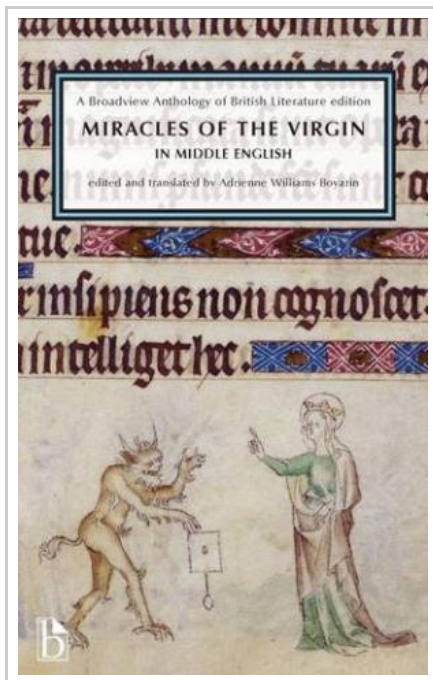 A Broadview Anthology of British Literature edition
MIRACLES OF THE VIRGIN
IN MIDDLE ENGLISH
edited and translated by Adrienne Williams Boyarin
tue.
insipiens non cognoscet.
intelliget hec.
b